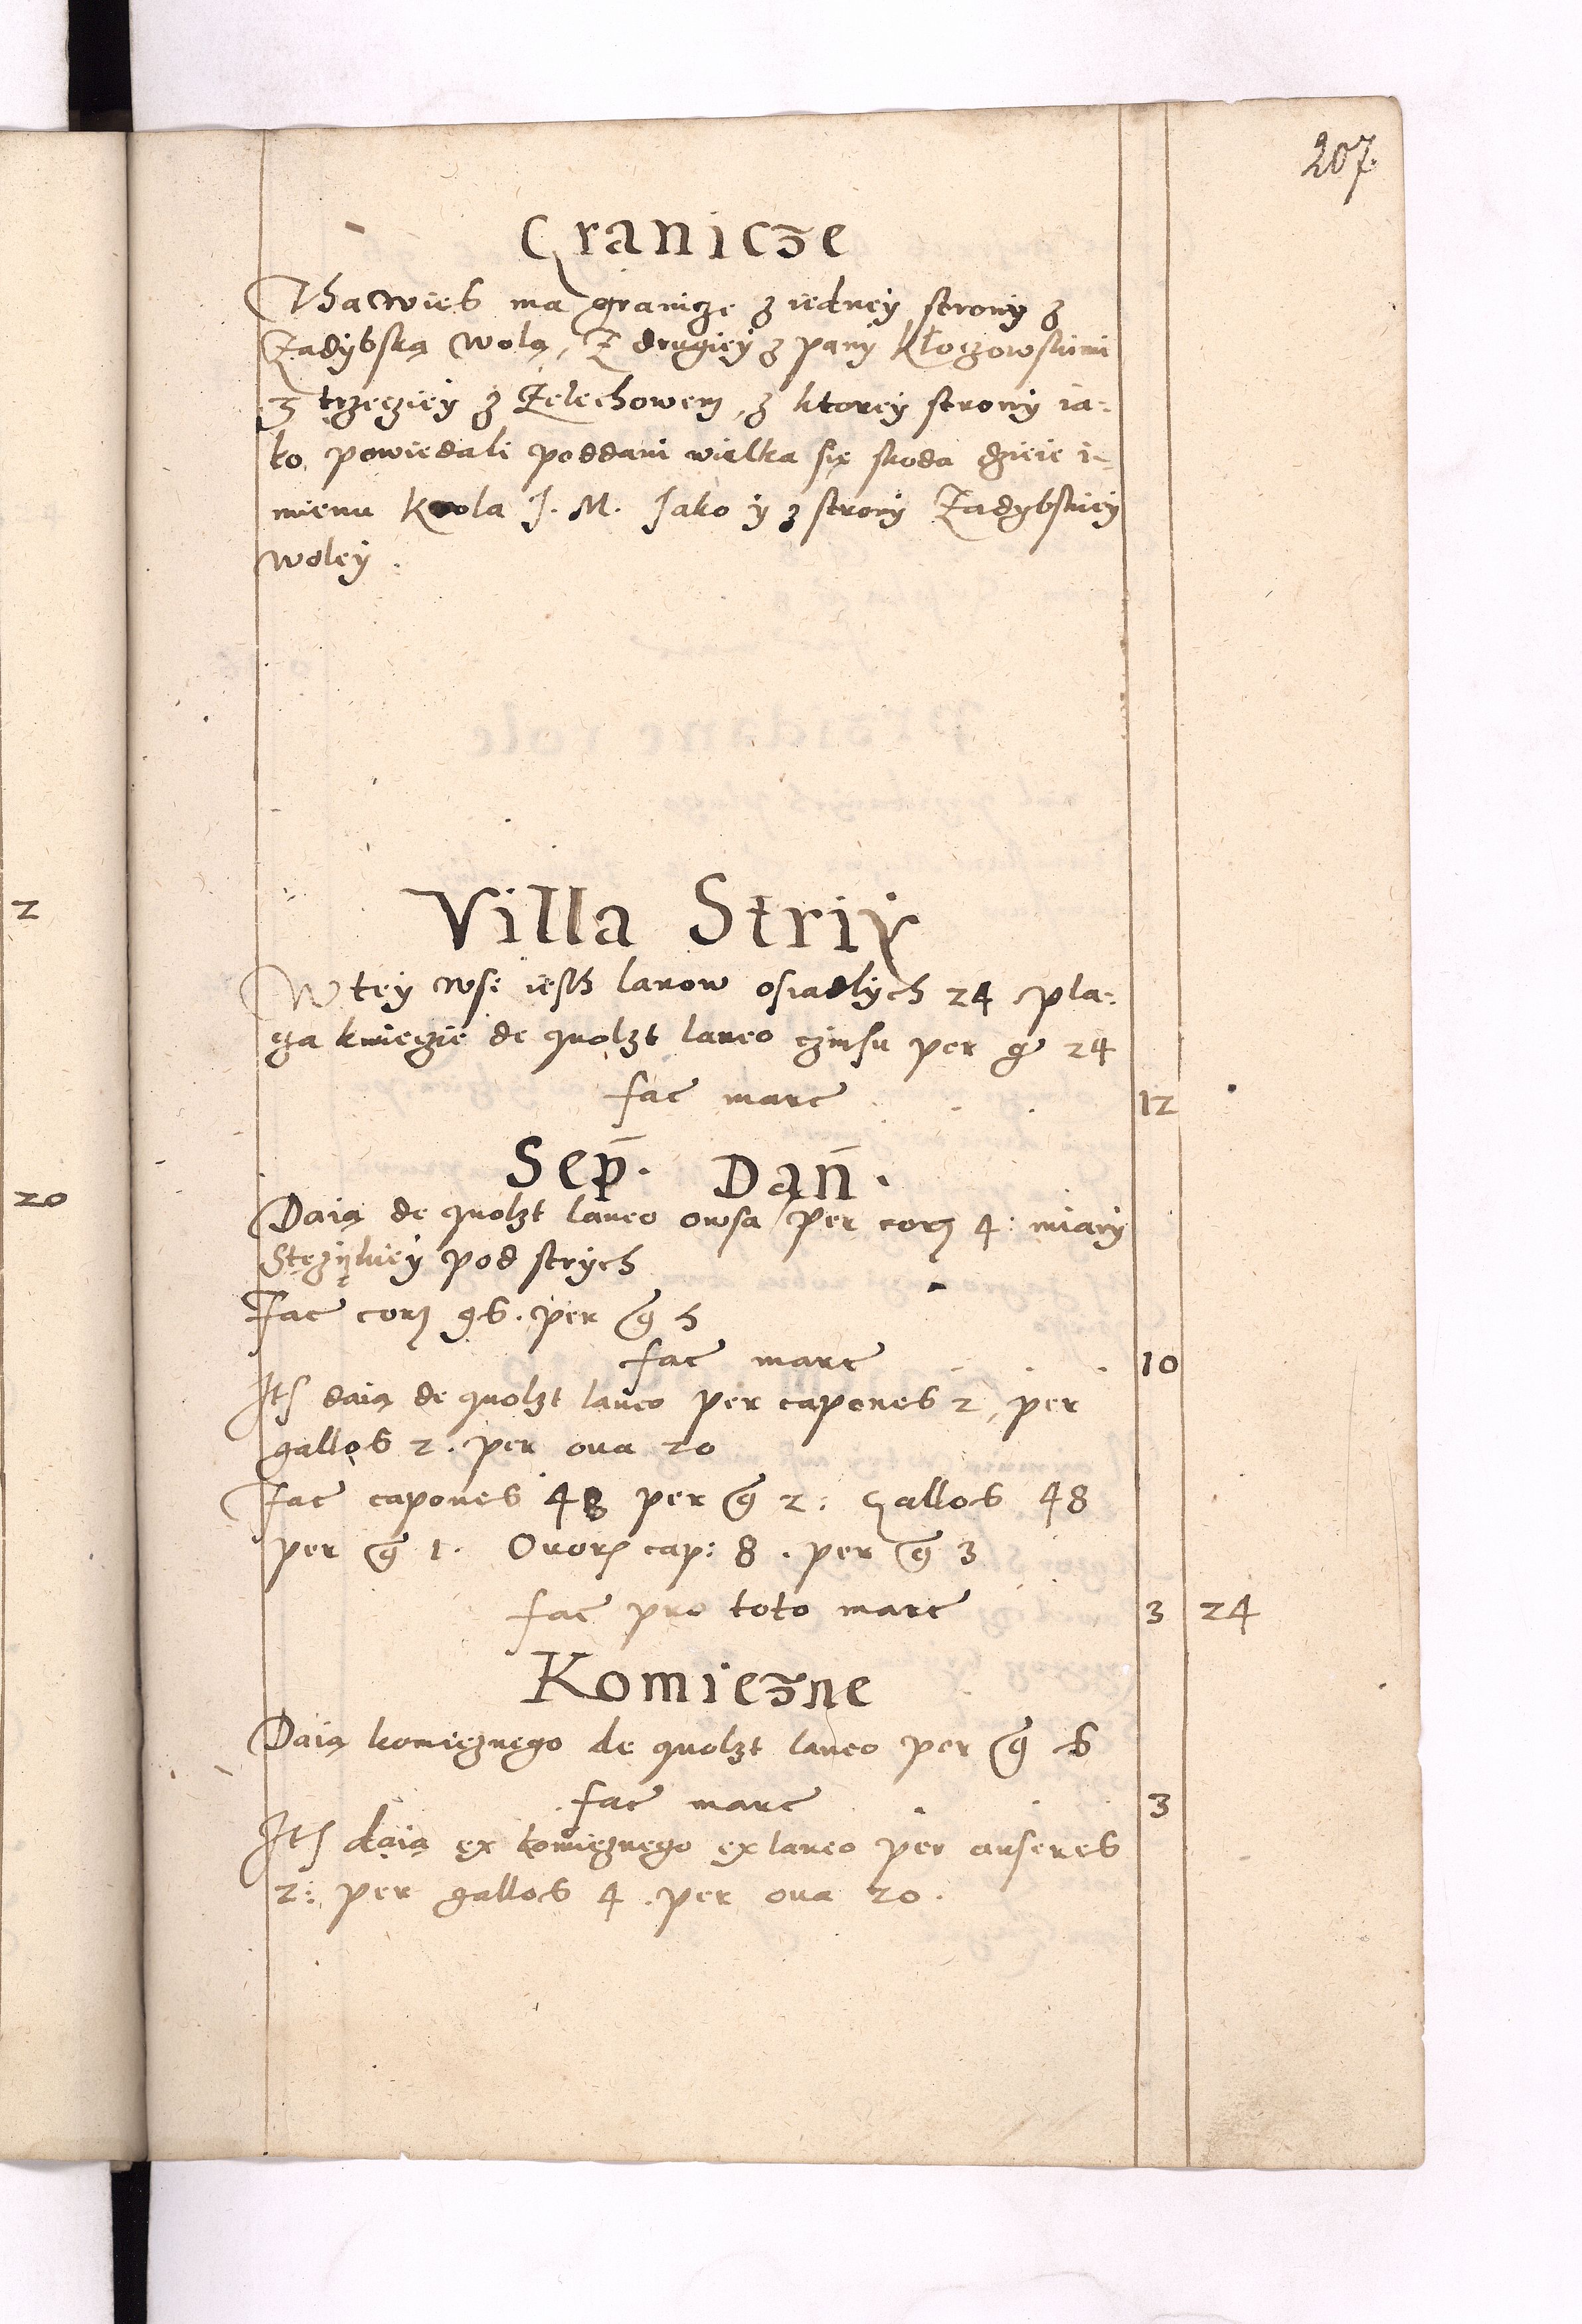 207.
Granicze
Tha wies ma granicze z iedney strony z
Zadybską wolą, Z drugiey z pany Kłoczowskimi
z trzecziey z Zelechowem, z ktorey strony ia-
ko powiedali poddani wielka się skoda dzieie i-
mieniu Krola J. M. Jako y z strony Zadybskiey
woley.
Villa Striy
W tey wsi iesth lanow osiadlych 24 pla-
cza kmieczie de quolzt laneo czinsu per g 24
fac marc 12
Sep. Dan.
Daią de quolzt laneo owsa per cor 4: miary
Stęzyckiey pod strych
Fac cor 96. per g 5
fac marc 10
Ite daią de quolzt laneo per capones 2, per
gallos 2. per oua 20
Fac capones 48 per g 2: Gallos 48
per g 1. Ouor cap: 8. per g 3
fac pro toto marc 3 24
Komiezne
Daią komieznego de quolzt laneo per g 6
fac marc 3
Ite daią ex komieznego ex laneo per anseres
2: per gallos 4. per oua 20.
2
20